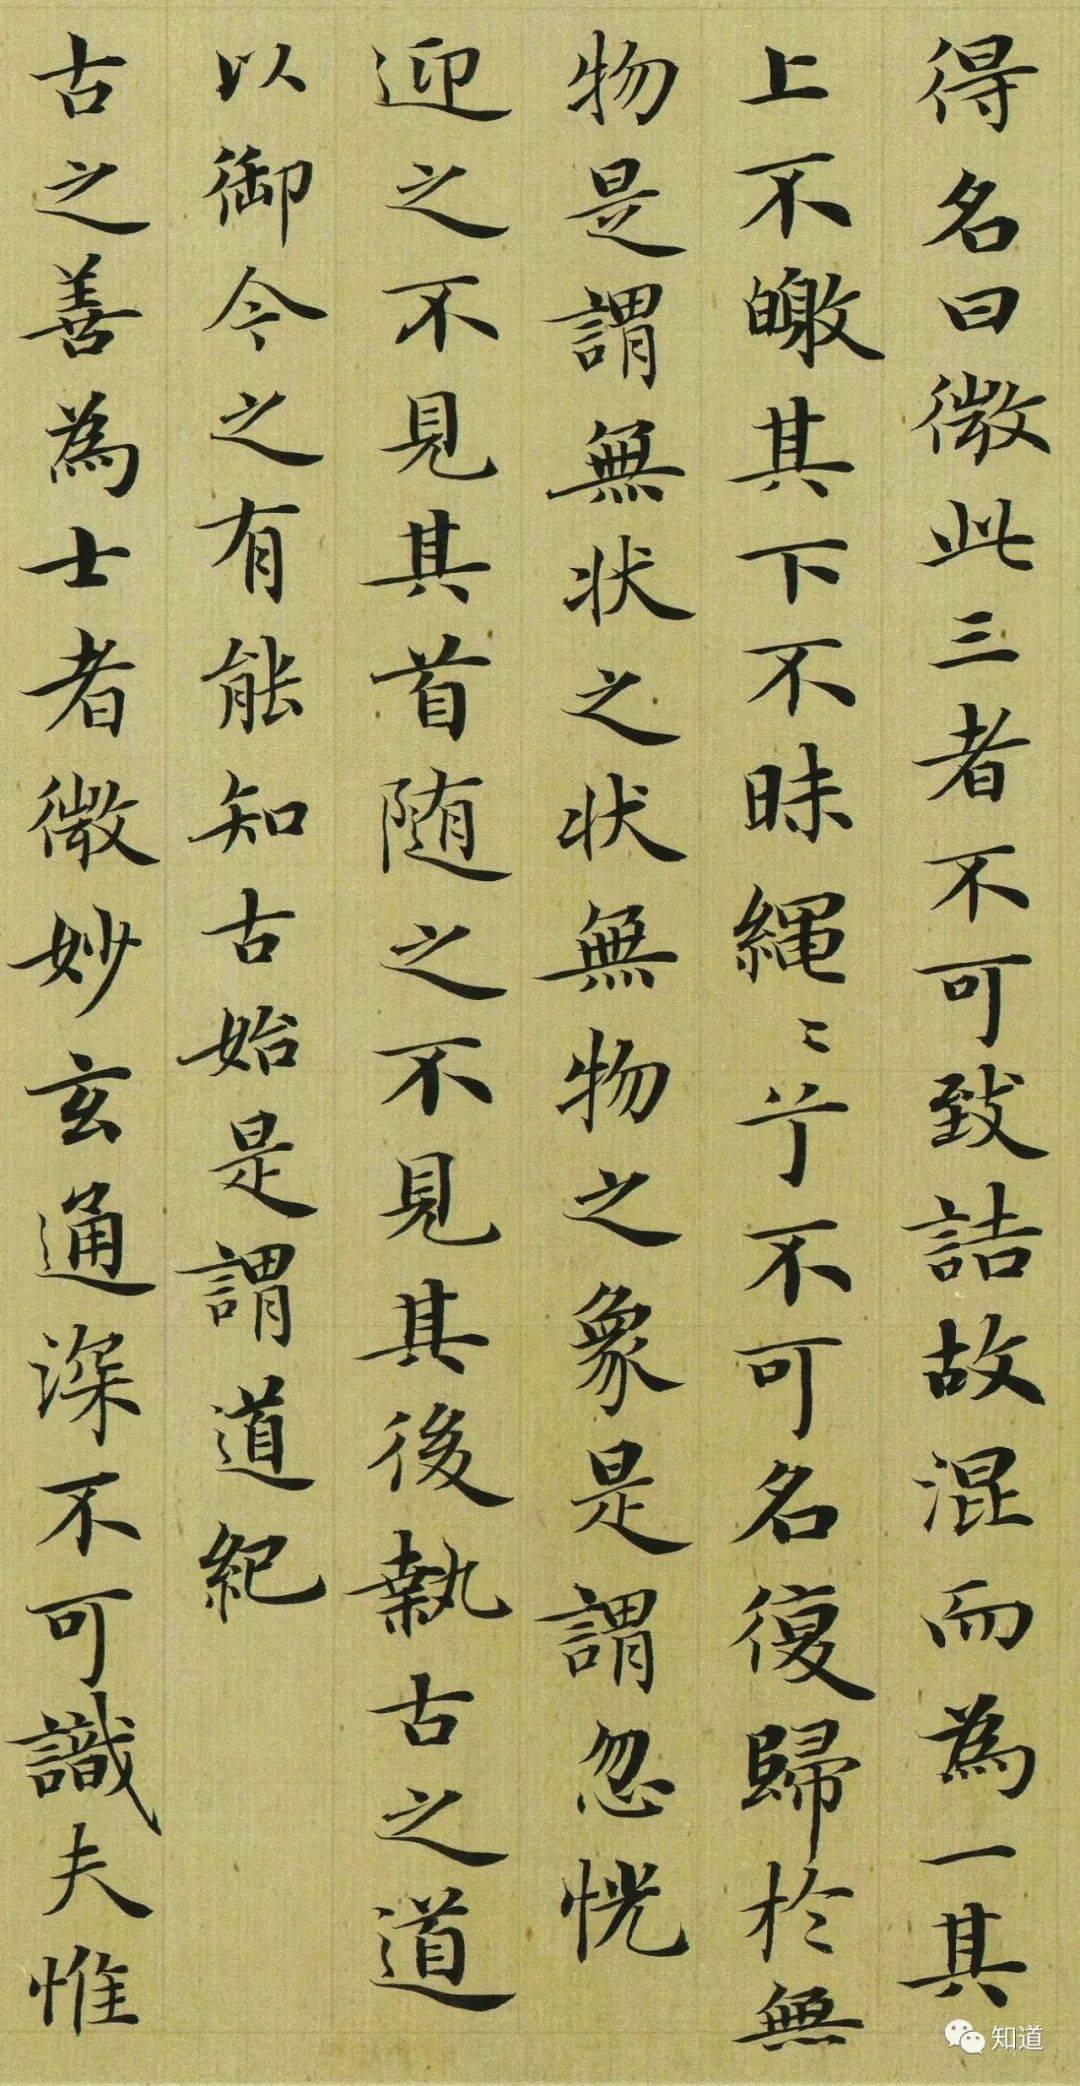 得名曰微此三者不可致詰故混而為一其
上不皦其下不昧繩〻兮不可名復歸於無
物是謂無状之状無物之象是謂忽恍
迎之不見其首随之不見其後執古之道
以御今之有能知古始是謂道紀
古之善為士者微妙玄通深不可識夫惟
知道